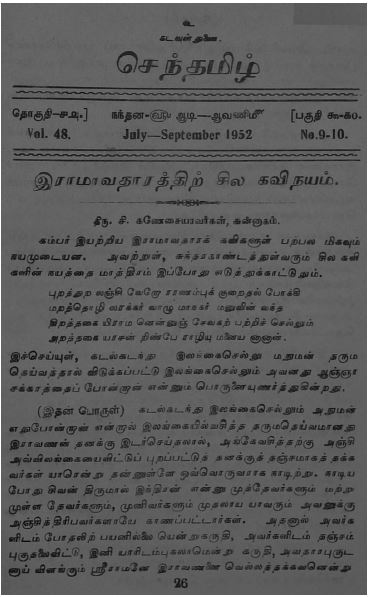 உ
கடவுள் துணை.
செந்தமிழ்
தொகுதி—சஅ.] நந்தன-௵ ஆடி—ஆவணி௴ [பகுதி ௯-௧௦.
Vol. 48. July—September 1952 No.9-10.
இராமாவதாரத்திற் சில கவிநயம்.
திரு. சி. கணேசையரவர்கள், சுன்னாகம்.
கம்பர் இயற்றிய இராமாவதாரக் கவிகளுள் பற்பல மிகவும்
நயமுடையன. அவற்றுள், சுந்தரகாண்டத்துள்வரும் சில கவி
களின் நயத்தை மாத்திரம் இப்போது எடுத்துக்காட்டுதும்.
புறத்துற லஞ்சி வேறோ ரரணம்புக் குறைதல் போக்கி
மறத்தொழி லரக்கர் வாழு மாநகர் மனுவின் வந்த
திறத்தகை யிராம னென்னுஞ் சேவகற் பற்றிச் செல்லும்
அறத்தகை யரசன் றிண்பே ராழியு மனைய னானான்.
இச்செய்யுள், கடல்கடந்து இலங்கைசெல்லு மநுமன் தரும
தெய்வத்தால் விடுக்கப்பட்டு இலங்கைசெல்லும் அவனது ஆஞ்ஞா
சக்கரத்தைப் போன்றான் என்னும் பொருளையுணர்த்துகின்றது.
(இதன் பொருள்) கடல்கடந்து இலங்கைசெல்லும் அநுமன்
எதுபோன்றான் என்றால் இலங்கையில்வசித்த தருமதெய்வமானது
இராவணன் தனக்கு இடர்செய்தலால், அங்கேவசித்தற்கு அஞ்சி
அவ்விலங்கையைவிட்டுப் புறப்பட்டுத் தனக்குத் தஞ்சமாகத் தக்க
வர்கள் யாரென்று தன்னுள்ளே ஒவ்வொருவராக நாடிற்று. நாடிய
போது சிவன் திருமால் இந்திரன் என்னு முத்தேவர்களும் மற்று
முள்ள தேவர்களும், முனிவர்களும் முதலாய யாவரும் அவனுக்கு
அஞ்சித்திரிபவர்களாயே காணப்பட்டார்கள். அதனால் அவர்க
ளிடம் போதலிற் பயனில்லை யென்றுகருதி, அவர்களிடம் தஞ்சம்
புகுதலைவிட்டு, இனி யாரிடம்புகலாமென்று கருதி, அவதாரபுருட
னாய் விளங்கும் ஸ்ரீராமனே இராவணனை வெல்லத்தக்கவனென்று
26